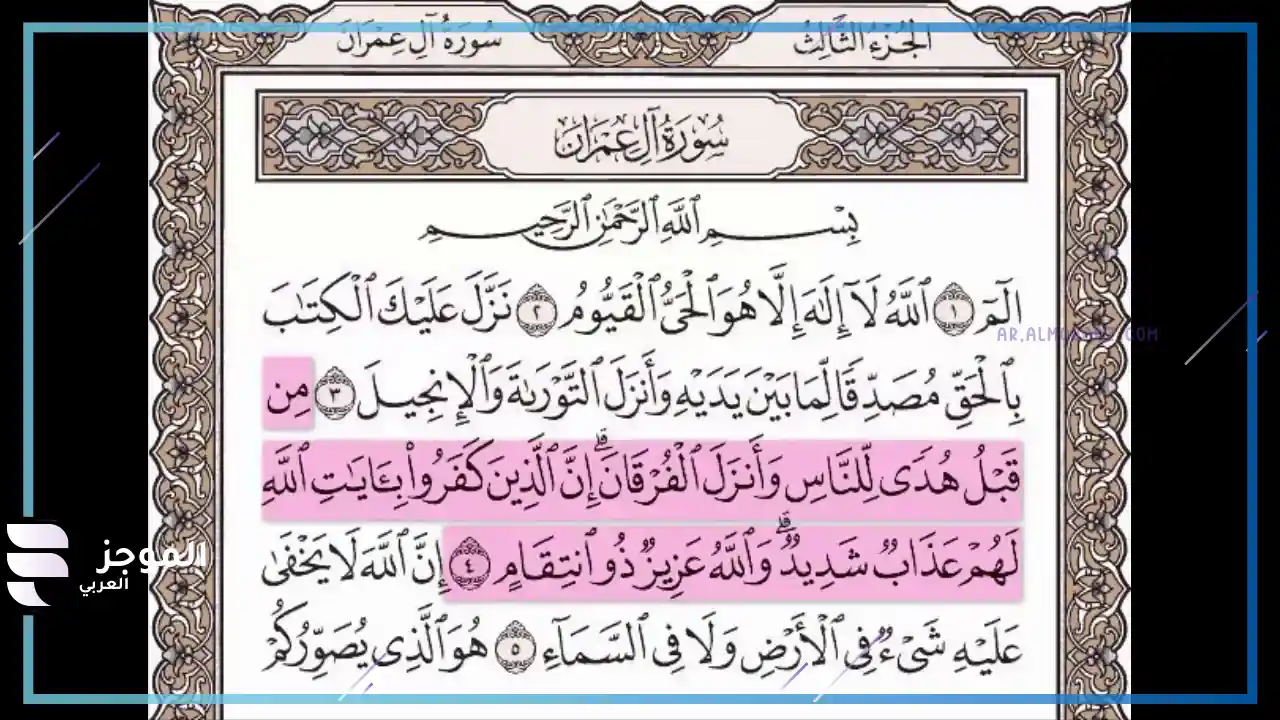 الجُزْءُ الثَّالِثُ
سُورَةُ آلِ عِمْرَانَ
سُورَةُ آلِ عِمْرَانَ
بِسْمِ ٱللَّهِ ٱلرَّحْمَٰنِ ٱلرَّحِيمِ
الٓمٓ ١ ٱللَّهُ لَآ إِلَٰهَ إِلَّا هُوَ ٱلْحَىُّ ٱلْقَيُّومُ ٢ نَزَّلَ عَلَيْكَ ٱلْكِتَٰبَ
بِٱلْحَقِّ مُصَدِّقًا لِّمَا بَيْنَ يَدَيْهِ وَأَنزَلَ ٱلتَّوْرَىٰةَ وَٱلْإِنجِيلَ ٣ مِن
قَبْلُ هُدًى لِّلنَّاسِ وَأَنزَلَ ٱلْفُرْقَانَ ۗ إِنَّ ٱلَّذِينَ كَفَرُوا۟ بِـَٔايَٰتِ ٱللَّهِ
لَهُمْ عَذَابٌ شَدِيدٌ ۗ وَٱللَّهُ عَزِيزٌ ذُو ٱنتِقَامٍ ٤ إِنَّ ٱللَّهَ لَا يَخْفَىٰ
عَلَيْهِ شَىْءٌ فِى ٱلْأَرْضِ وَلَا فِى ٱلسَّمَآءِ ٥ هُوَ ٱلَّذِى يُصَوِّرُكُمْ
الموجز
العربي